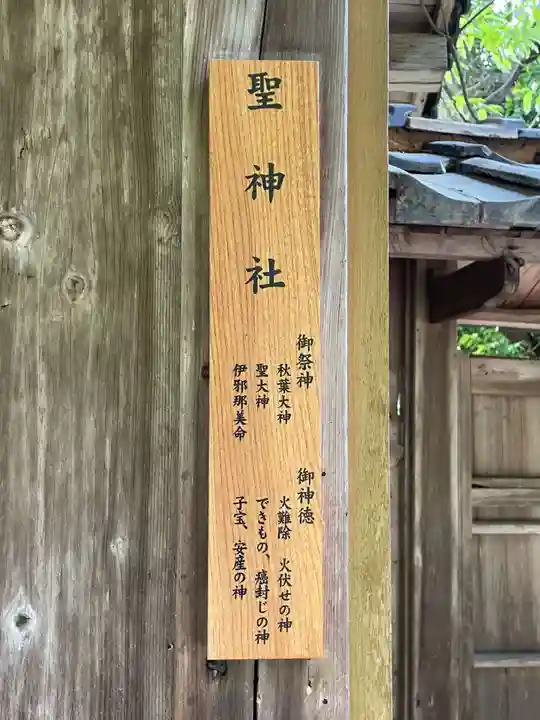 聖神社
御祭神
秋葉大神
聖大神
伊邪那美命
御神徳
火難除 火伏せの神
できもの、癌封じの神
子宝、安産の神